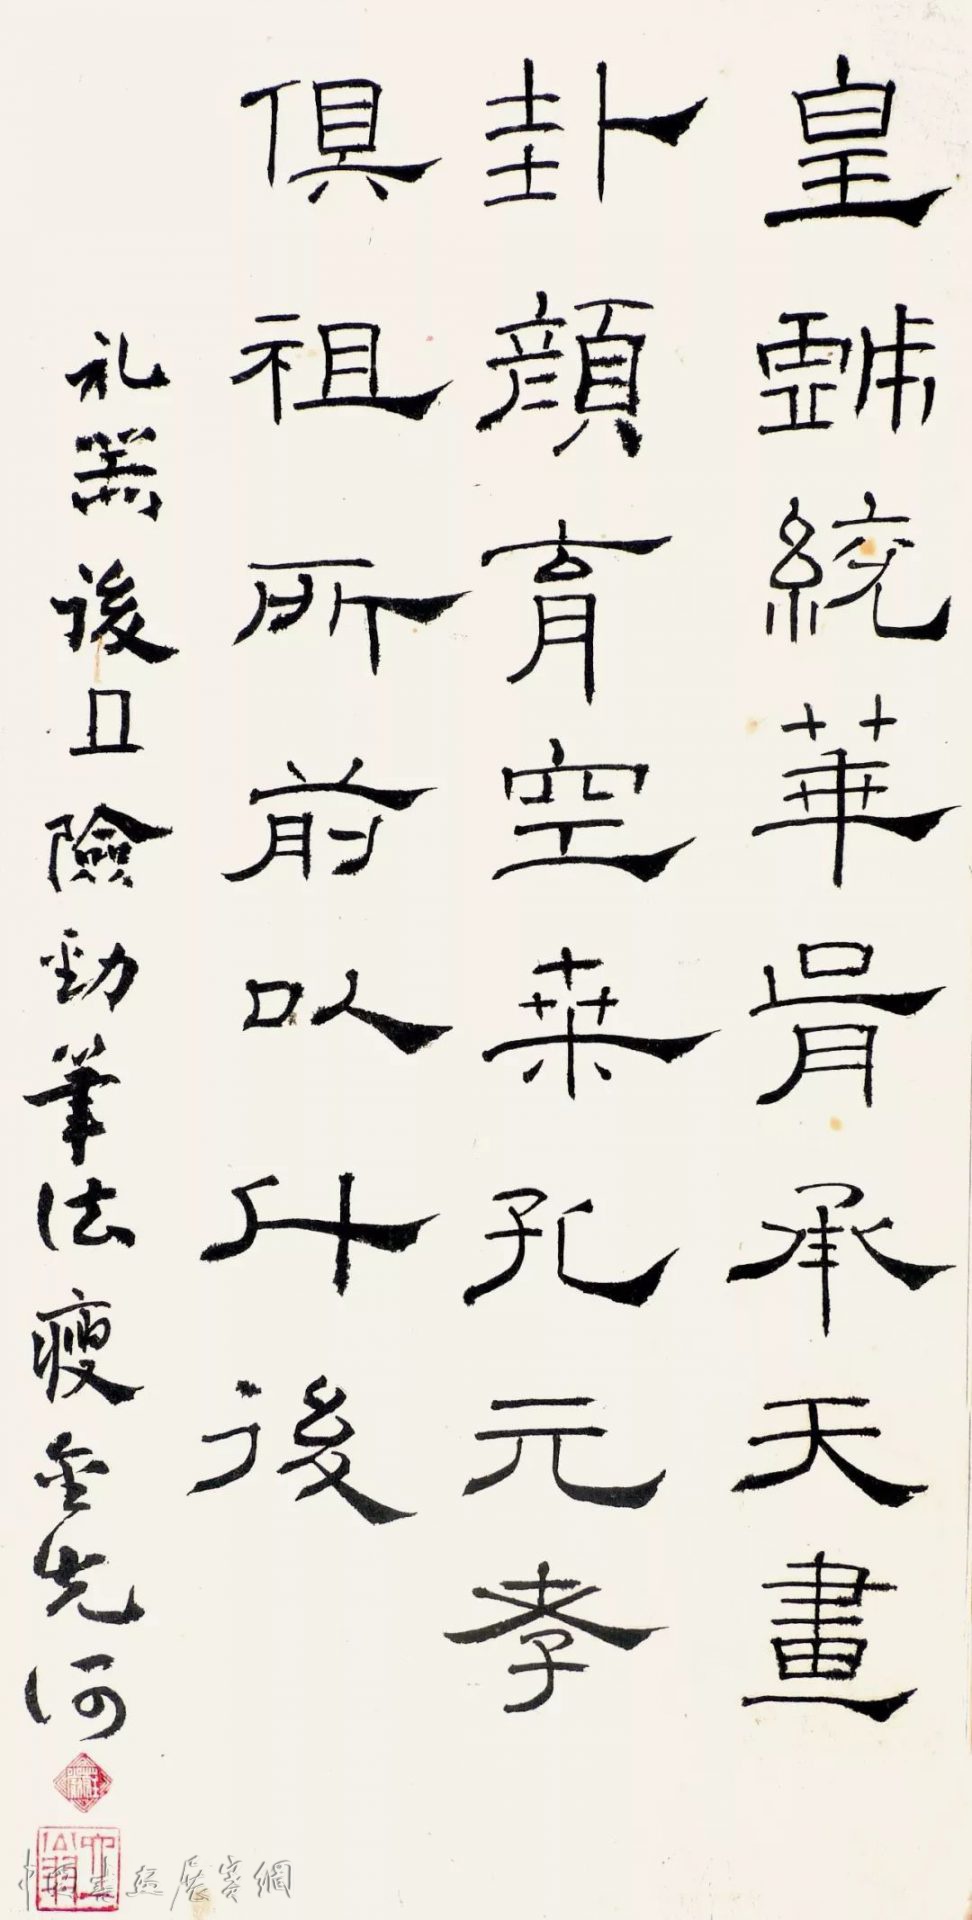 皇統華胥承天畫
卦顏育空桒孔元孝
俱祖所前以升後
礼器峻且險勁筆法瘦金先河
中國書画展賽網